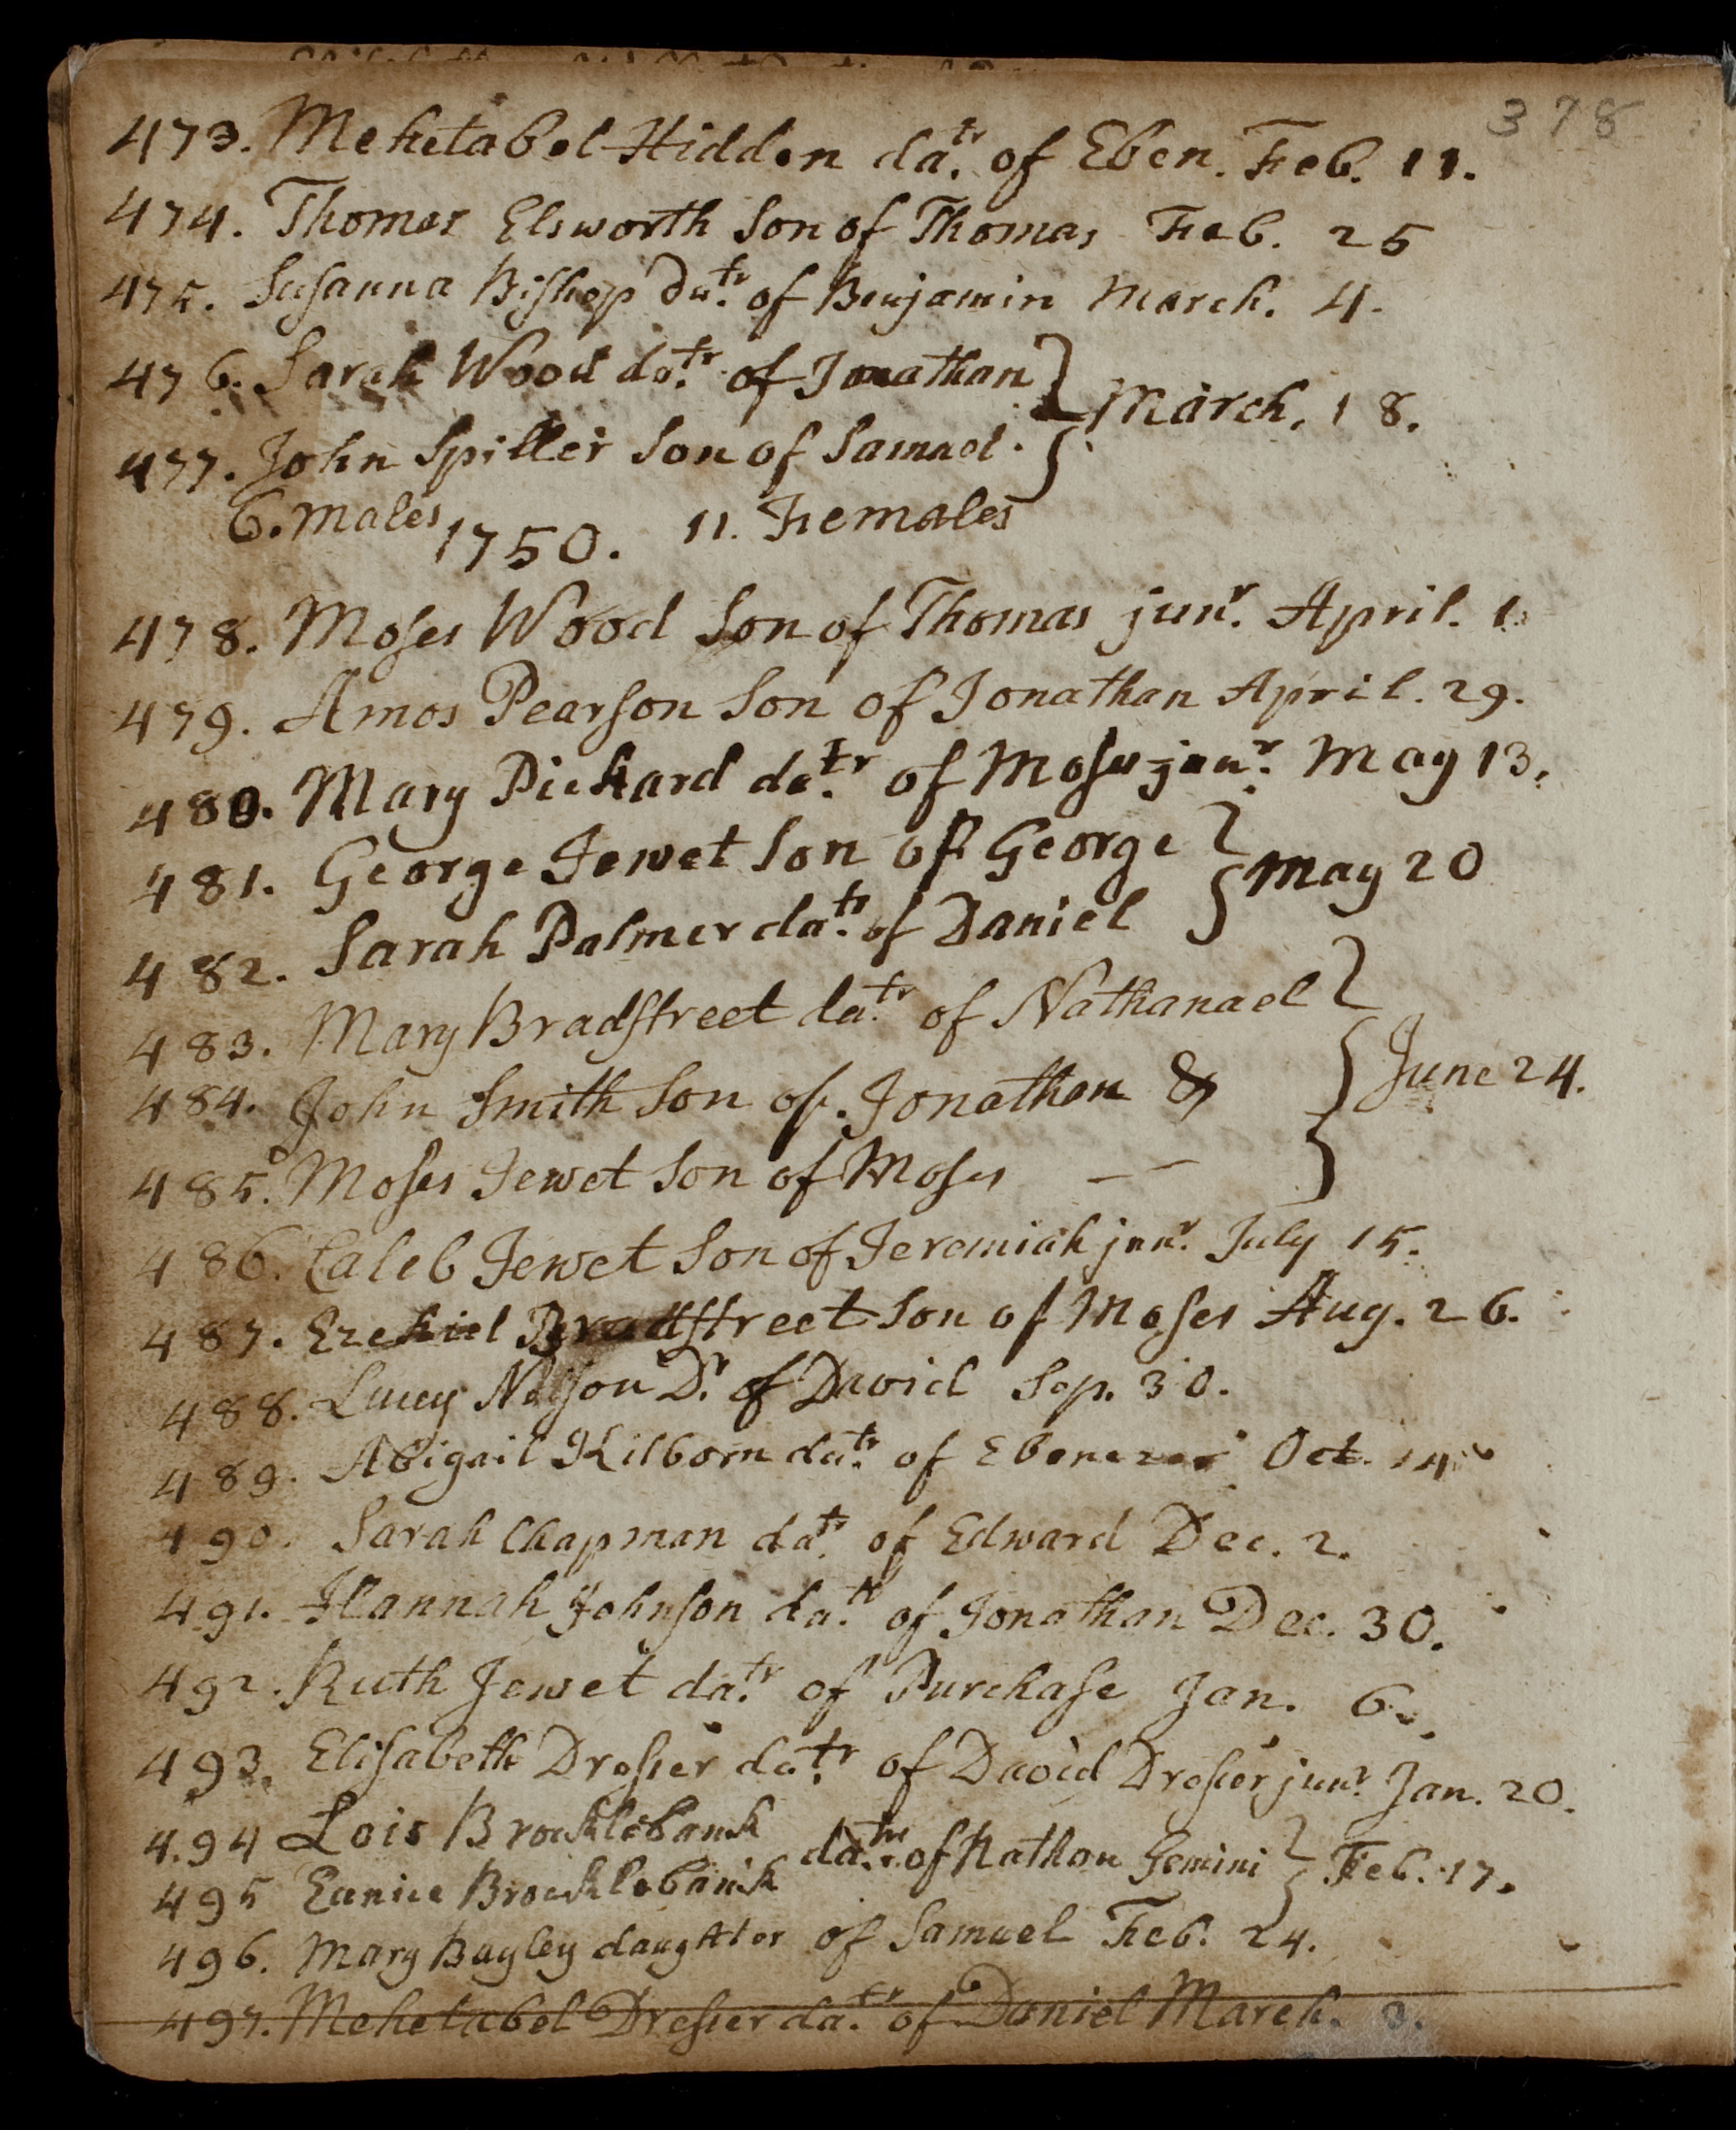 378
473. Mehetabel Hidden datr. of Eben. Feb. 11.
474. Thomas Elsworth Son of Thomas Feb. 25
475. Susanna Bishop Datr. of Benjamin March. 4.
476. Sarah Wood datr. of Jonathan
March, 18.
477. John Spiller Son of Samuel.
6. males 1750. 11. Females
478. Moses Wood Son of Thomas junr. April. 1.
479. Amos Pearson Son of Jonathan April. 29.
480. Mary Pickard datr. of Moses junr. May 13.
481. George Jewet Son of George
May 20
482. Sarah Palmer datr. of Daniel
483. Mary Bradstreet datr. of Nathanael
484. John Smith Son of Jonathan &
June 24.
485. Moses Jewet Son of Moses — —
486. Caleb Jewet Son of Jeremiah junr. July 15.
487. Ezekiel Bradstreet Son of Moses Aug. 26.
488. Lucey Nelson Dr. of David Sep. 30.
489. Abigail Kilborn datr. of Ebenezer Oct. 14
490. Sarah Chapman datr. of Edward Dec. 2.
491. Hannah Johnson datr. of Jonathan Dec. 30.
492. Ruth Jewet datr. of Purchase Jan. 6.
493. Elisabeth Dresser datr. of David Dresser junr. Jan. 20.
494 Lois Brocklebank
datrs. of Nathan Gemini Feb. 17.
495 Eunice Brocklebank
496. Mary Bayley daughter of Samuel Feb. 24.
497. Mehetabel Dresser datr. of Daniel March. 3.